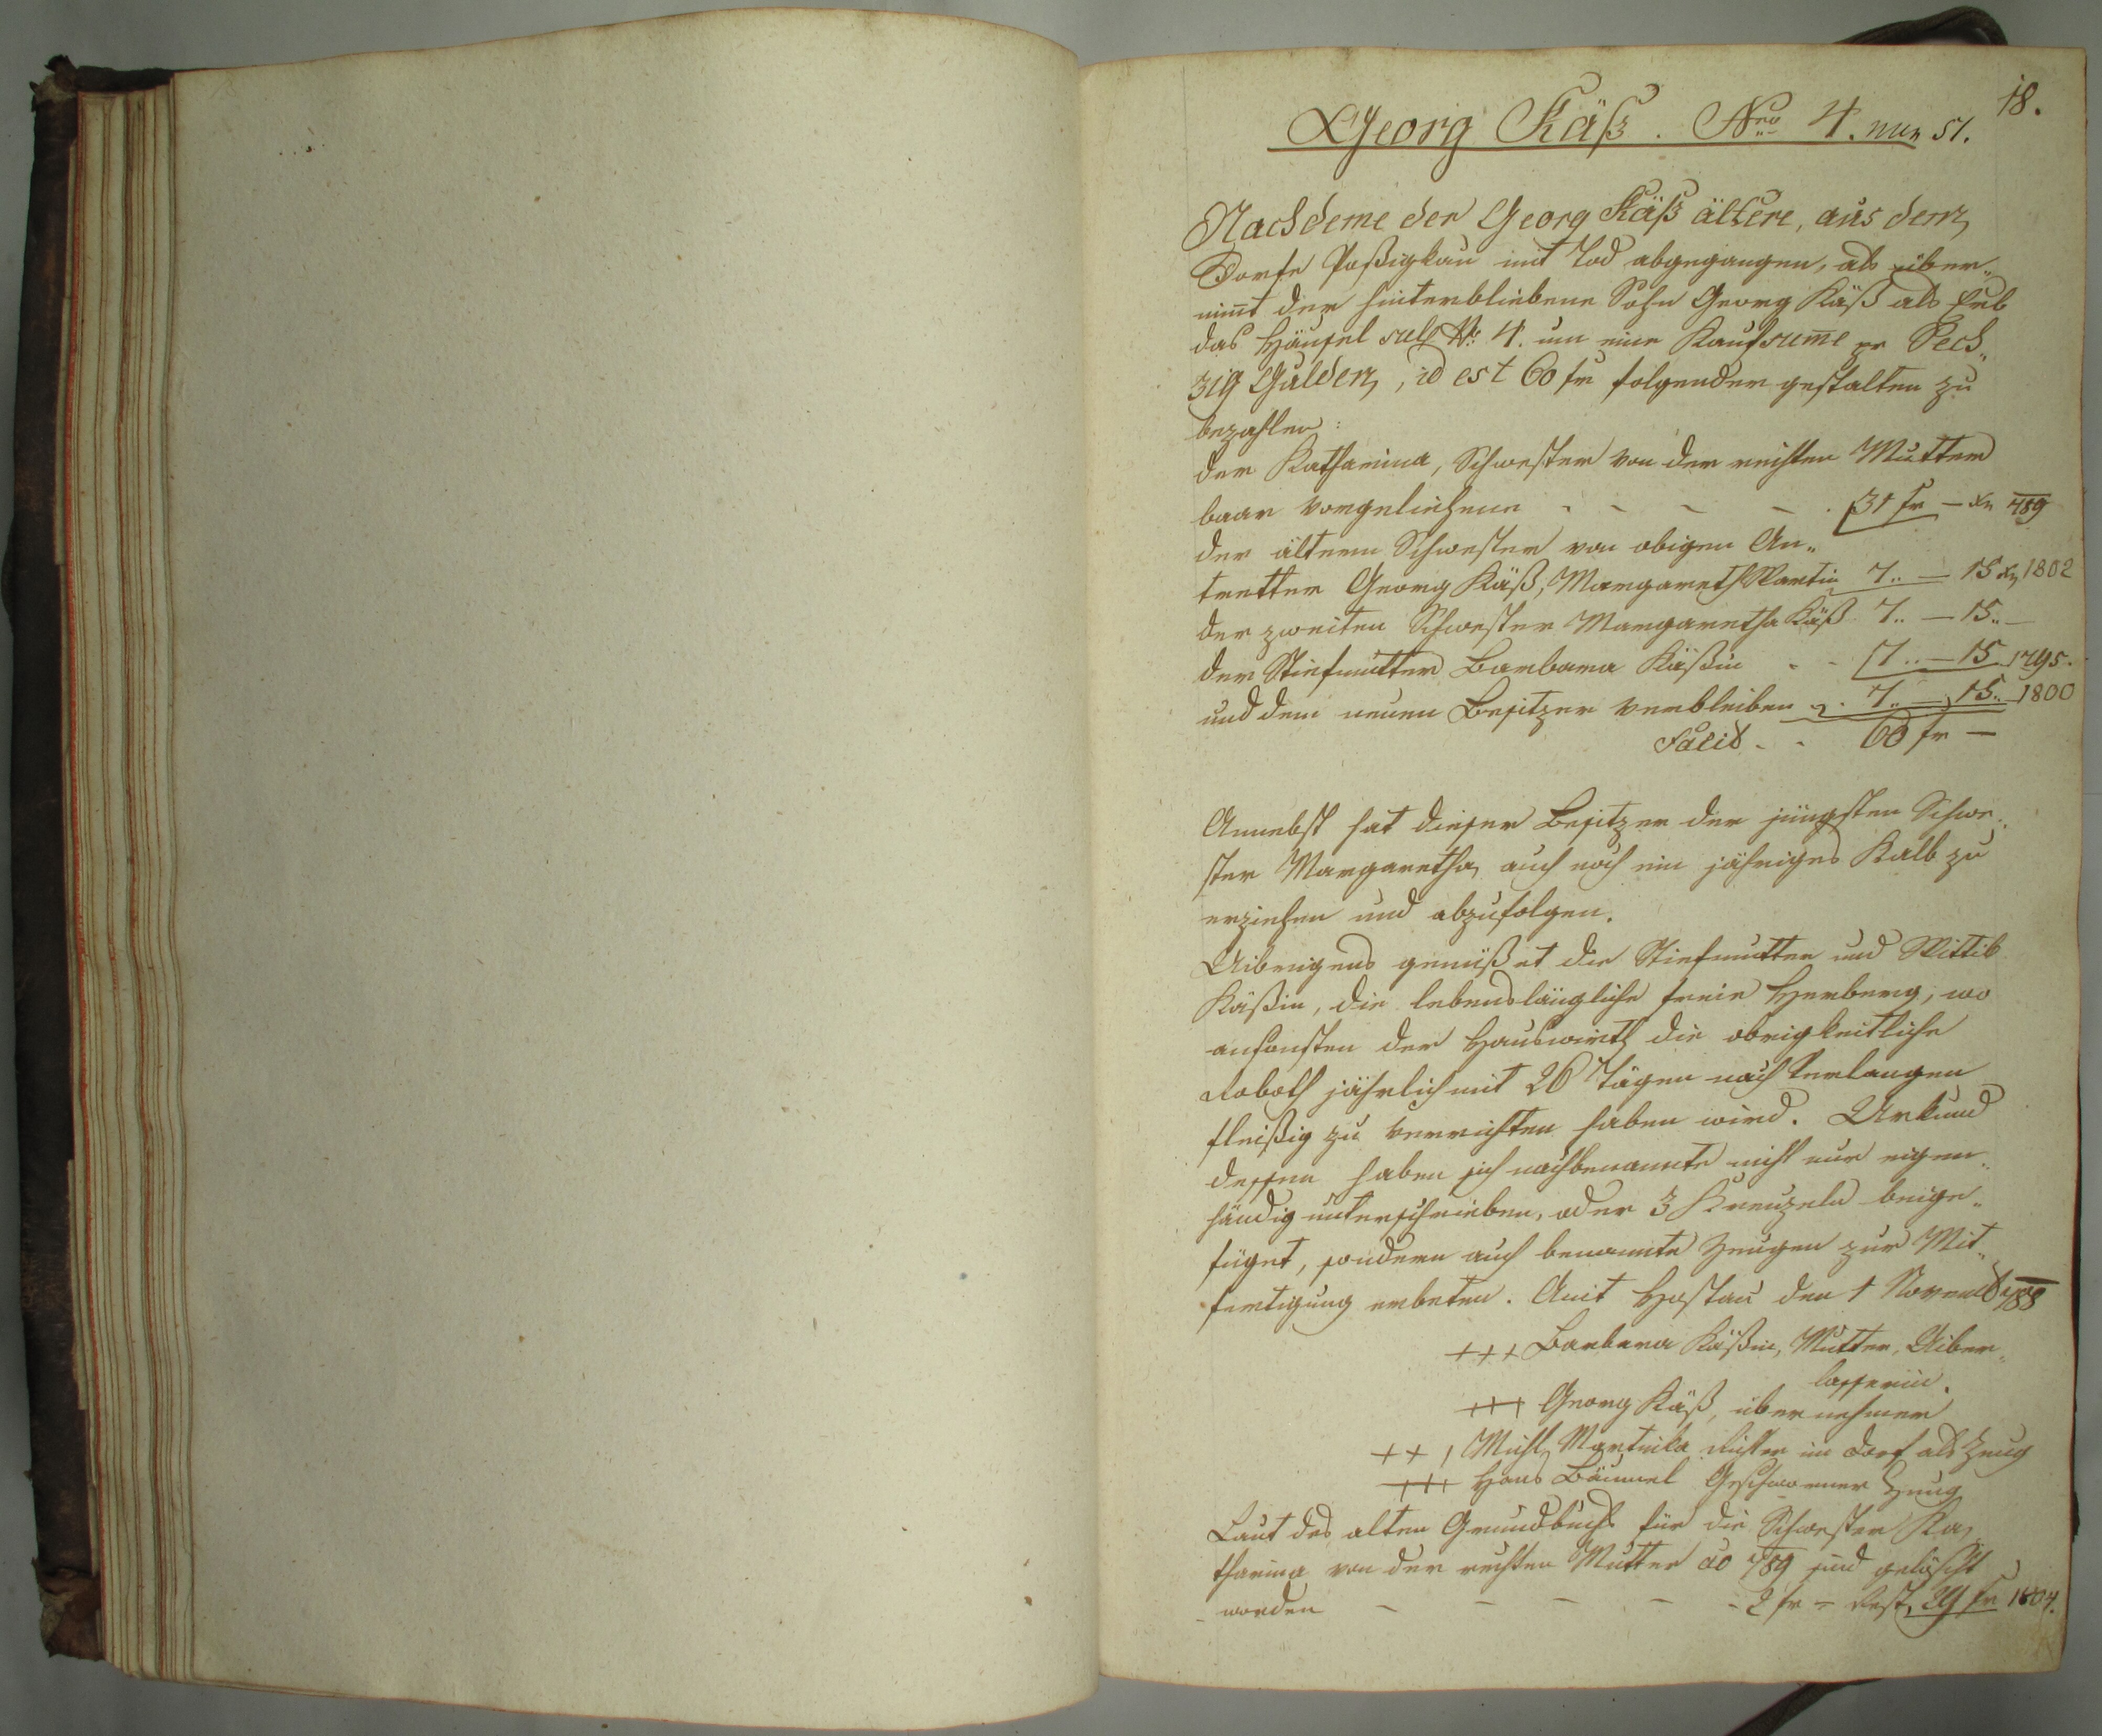 18.
Georg Käß. Nro 4. nun 51.
Nachdeme der Georg Käß ältere, aus dem
Dorfe Poßigkau mit Tod abgegangen, als über„
nimt der hinterbliebene Sohn Georg Käß als Erb
das Häusel sub No 4. um eine Kaufsume pr Sech„
zig Gulden, id est 60 fr folgender gestalten zu
bezahlen:
der Katharina, Schwester von der rechten Mutter
baar vorgeliehene - - - - 31 fr - xr 789
der ältern Schwester von obigen An„
tretter Georg Käß, Margareth Martin 7.. — 15 xr 1802
der zweiten Schwester Margaretha Käß 7.. — 15.. —
der Stiefmutter Barbara Käßin - - 7.. — 15 1795.
und dem neuen Besitzer verbleiben 7.. — 15.. 1800
Facit - - 60 fr —
Annebst hat dieser Besitzer der jüngsten Schwe„
ster Margaretha, auch noch ein jähriges Kalb zu
erziehen und abzufolgen.
Uibrigens genüßet die Stiefmutter und Wittib
Käßin, die lebenslängliche freie Herberg, wo
ansonsten der Hauswirth die obrigkeitliche
Roboth jährlich mit 26 Tägen nach Verlangen
fleißig zu verrichten haben wird. Urkund
dessen haben sich nachbenannte nicht nur eigen„
händig unterschrieben, oder 3 Kreuzeln beige„
füget, sondern auch benannte Zeugen zur Mit„
fertigung erbeten. Amt Hostau den 1 Novemb 788
+++ Barbara Käßin, Mutter, Uiber„
lasserin.
+++ Georg Käß, übernehmer
+++ Michl Martinka Richter im Dorf als Zeug
+++ Hans Bäumel Geschworner Zeug
Laut des alten Grundbuchs für die Schwester Ka„
tharina von der rechten Mutter ao 789 sind gelöscht
worden - - - - - 2 fr - Rest 29 fr 1804.